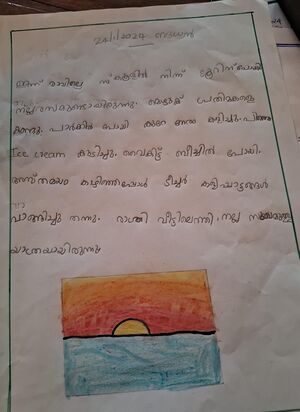 24/1/2024 ബുധൻ
ഇന്ന് രാവിലെ സ്കൂളിൽ നിന്ന് ടൂറിന് പോയി
നല്ല രസമുണ്ടായിരുന്നു. പ്രതിമകളെ
കണ്ടു. പാർക്കിൽ പോയി കുറേ നേരം കളിച്ചു. പിന്നെ
Ice cream കഴിച്ചു. വൈകിട്ട് ബീച്ചിൽ പോയി.
അസ്തമയം കഴിഞ്ഞപ്പോൾ ടീച്ചർ കളിപ്പാട്ടങ്ങൾ
വാങ്ങിച്ചു തന്നു. രാത്രി വീട്ടിലെത്തി. നല്ല
യാത്രയായിരുന്നു.